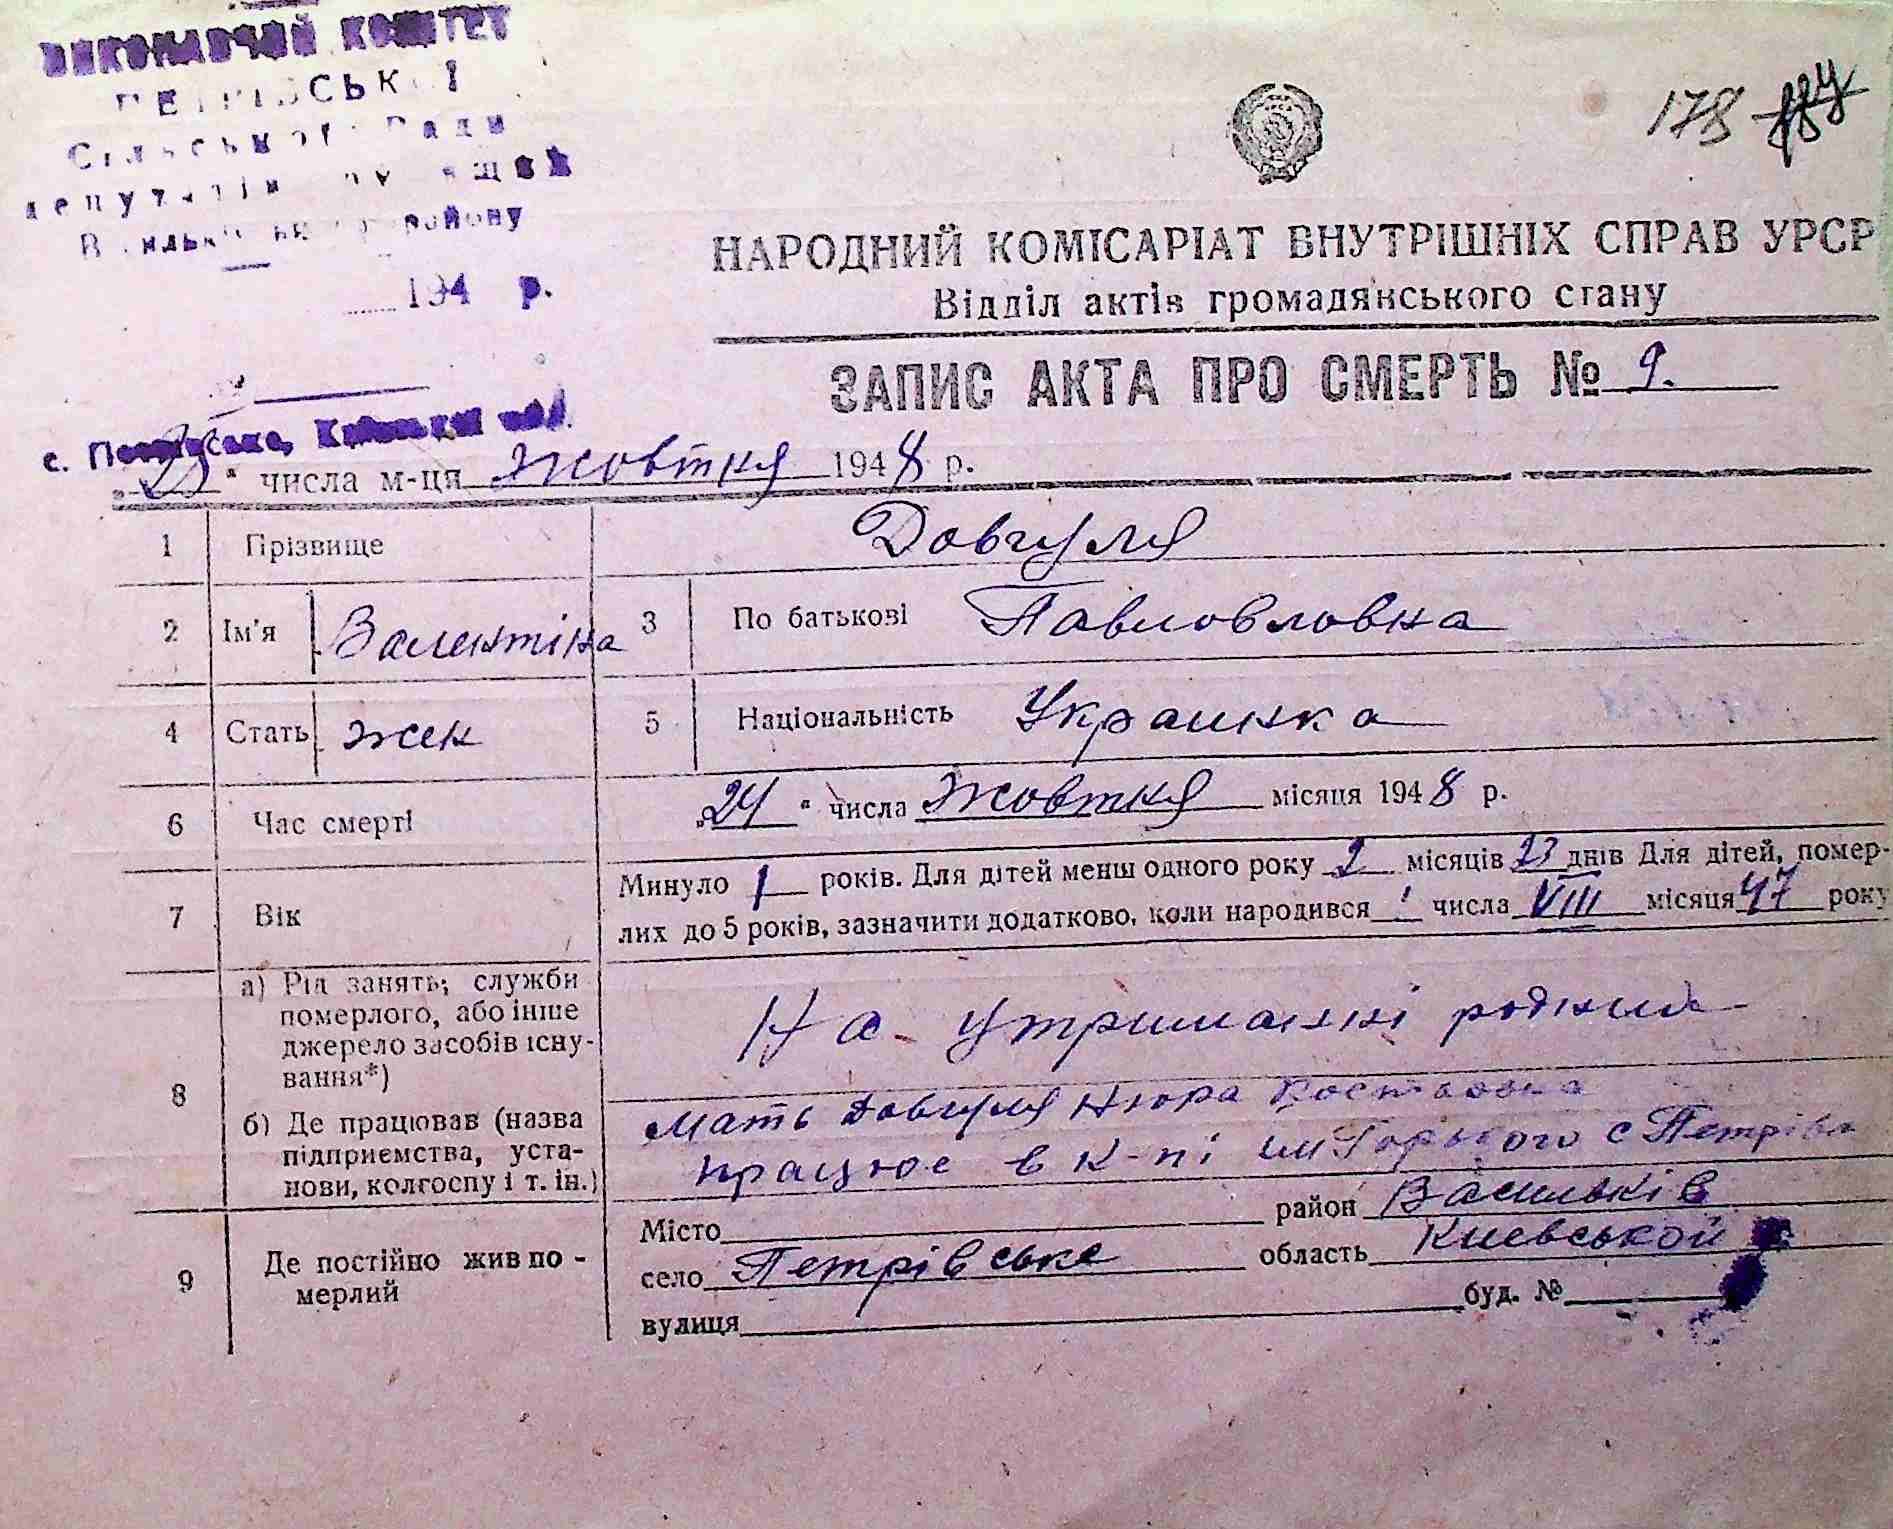 ВИКОНАВЧИЙ КОМІТЕТ
ПЕТРІВСЬКОЇ
Сільської Ради
депутатів трудящих
Васильківського району
194 р.
с. Петрівське, Київської обл.
178
НАРОДНИЙ КОМІСАРІАТ ВНУТРІШНІХ СПРАВ УРСР
Відділ актів громадянського стану
ЗАПИС АКТА ПРО СМЕРТЬ № 9.
„25" числа м-ця Жовтня 1948 р.
1 Прізвище Довгуля
2 Ім'я Валентіна 3 По батькові Павловловна
4 Стать жен 5 Національність Украинка
6 Час смерті „24" числа Жовтня місяця 1948 р.
7 Вік Минуло 1 років. Для дітей менш одного року 2 місяців 23 днів Для дітей, помер-
лих до 5 років, зазначити додатково, коли народився 1 числа VIII місяця 47 року
8 а) Рід занять; служби
померлого, або інше
джерело засобів існу-
вання*)
На утриманні родини
б) Де працював (назва
підприємства, уста-
нови, колгоспу і т. ін.)
Мать Довгуля Нюра
працює в к-пі им Горького с Петрівка
9 Де постійно жив по-
мерлий
Місто район Васильків
село Петрівське область Киевськой
вулиця буд. №